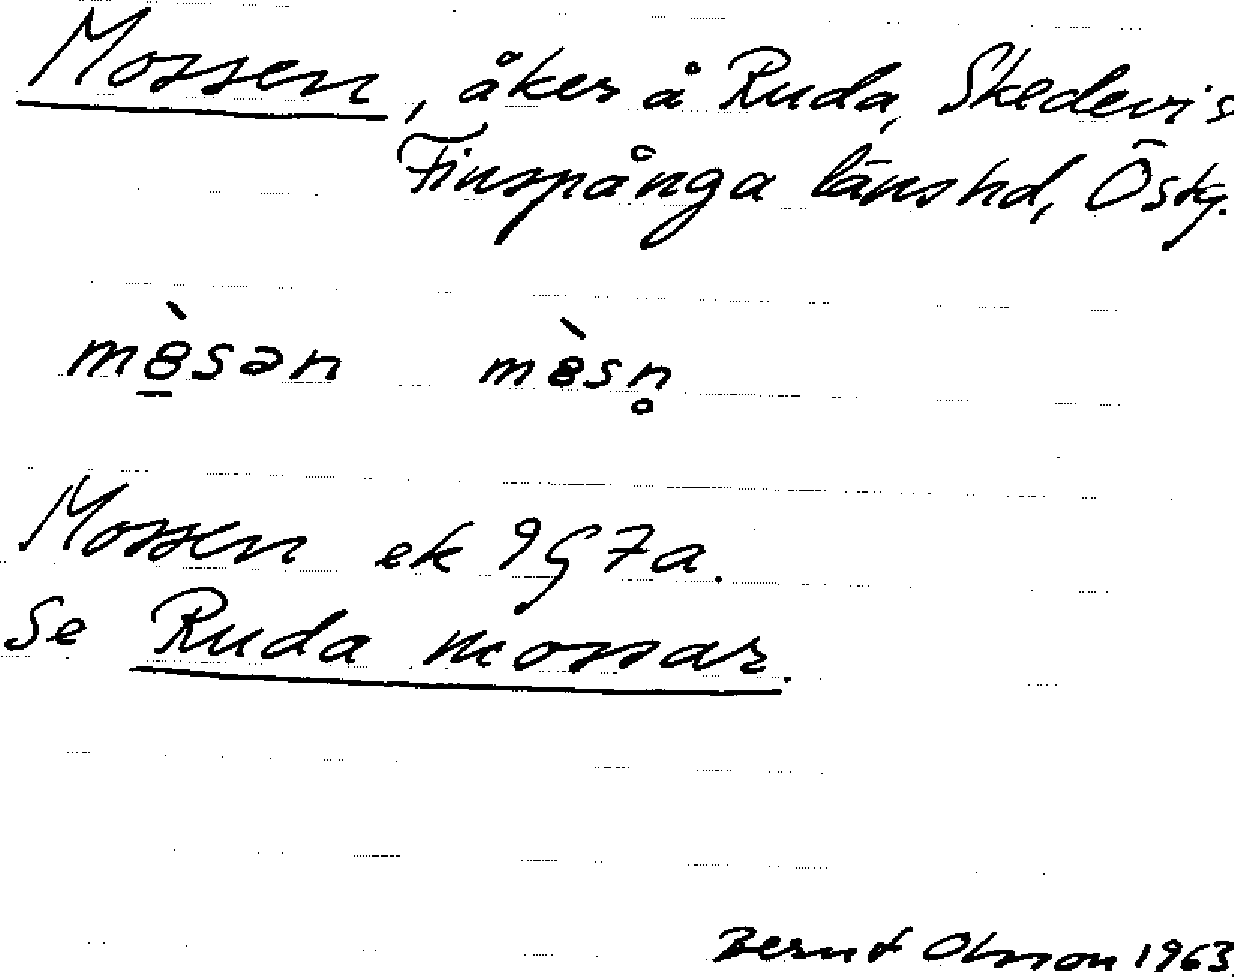 Mossen, åker å Ruda, Skedevi s
Finspånga länshd, Östg.
mȯ̱̀sən mȯ̀sn̥
Mossen ek 9G7a.
Se Ruda mossar.
Bernt Olsson 1963.